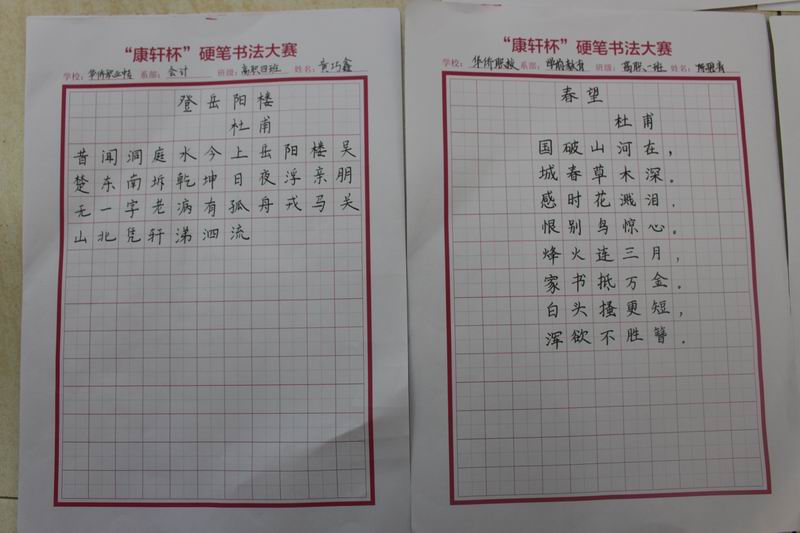 “康轩杯”硬笔书法大赛
学校：华侨职业中专 系部：会计 班级：高职四班 姓名：黄巧鑫
登岳阳楼
杜甫
昔闻洞庭水今上岳阳楼吴
楚东南坼乾坤日夜浮亲朋
无一字老病有孤舟戎马关
山北凭轩涕泗流
“康轩杯”硬笔书法大赛
学校：华侨职校 系部：学前教育 班级：高职一班 姓名：
春望
杜甫
国破山河在，
城春草木深。
感时花溅泪，
恨别鸟惊心。
烽火连三月，
家书抵万金。
白头搔更短，
浑欲不胜簪。